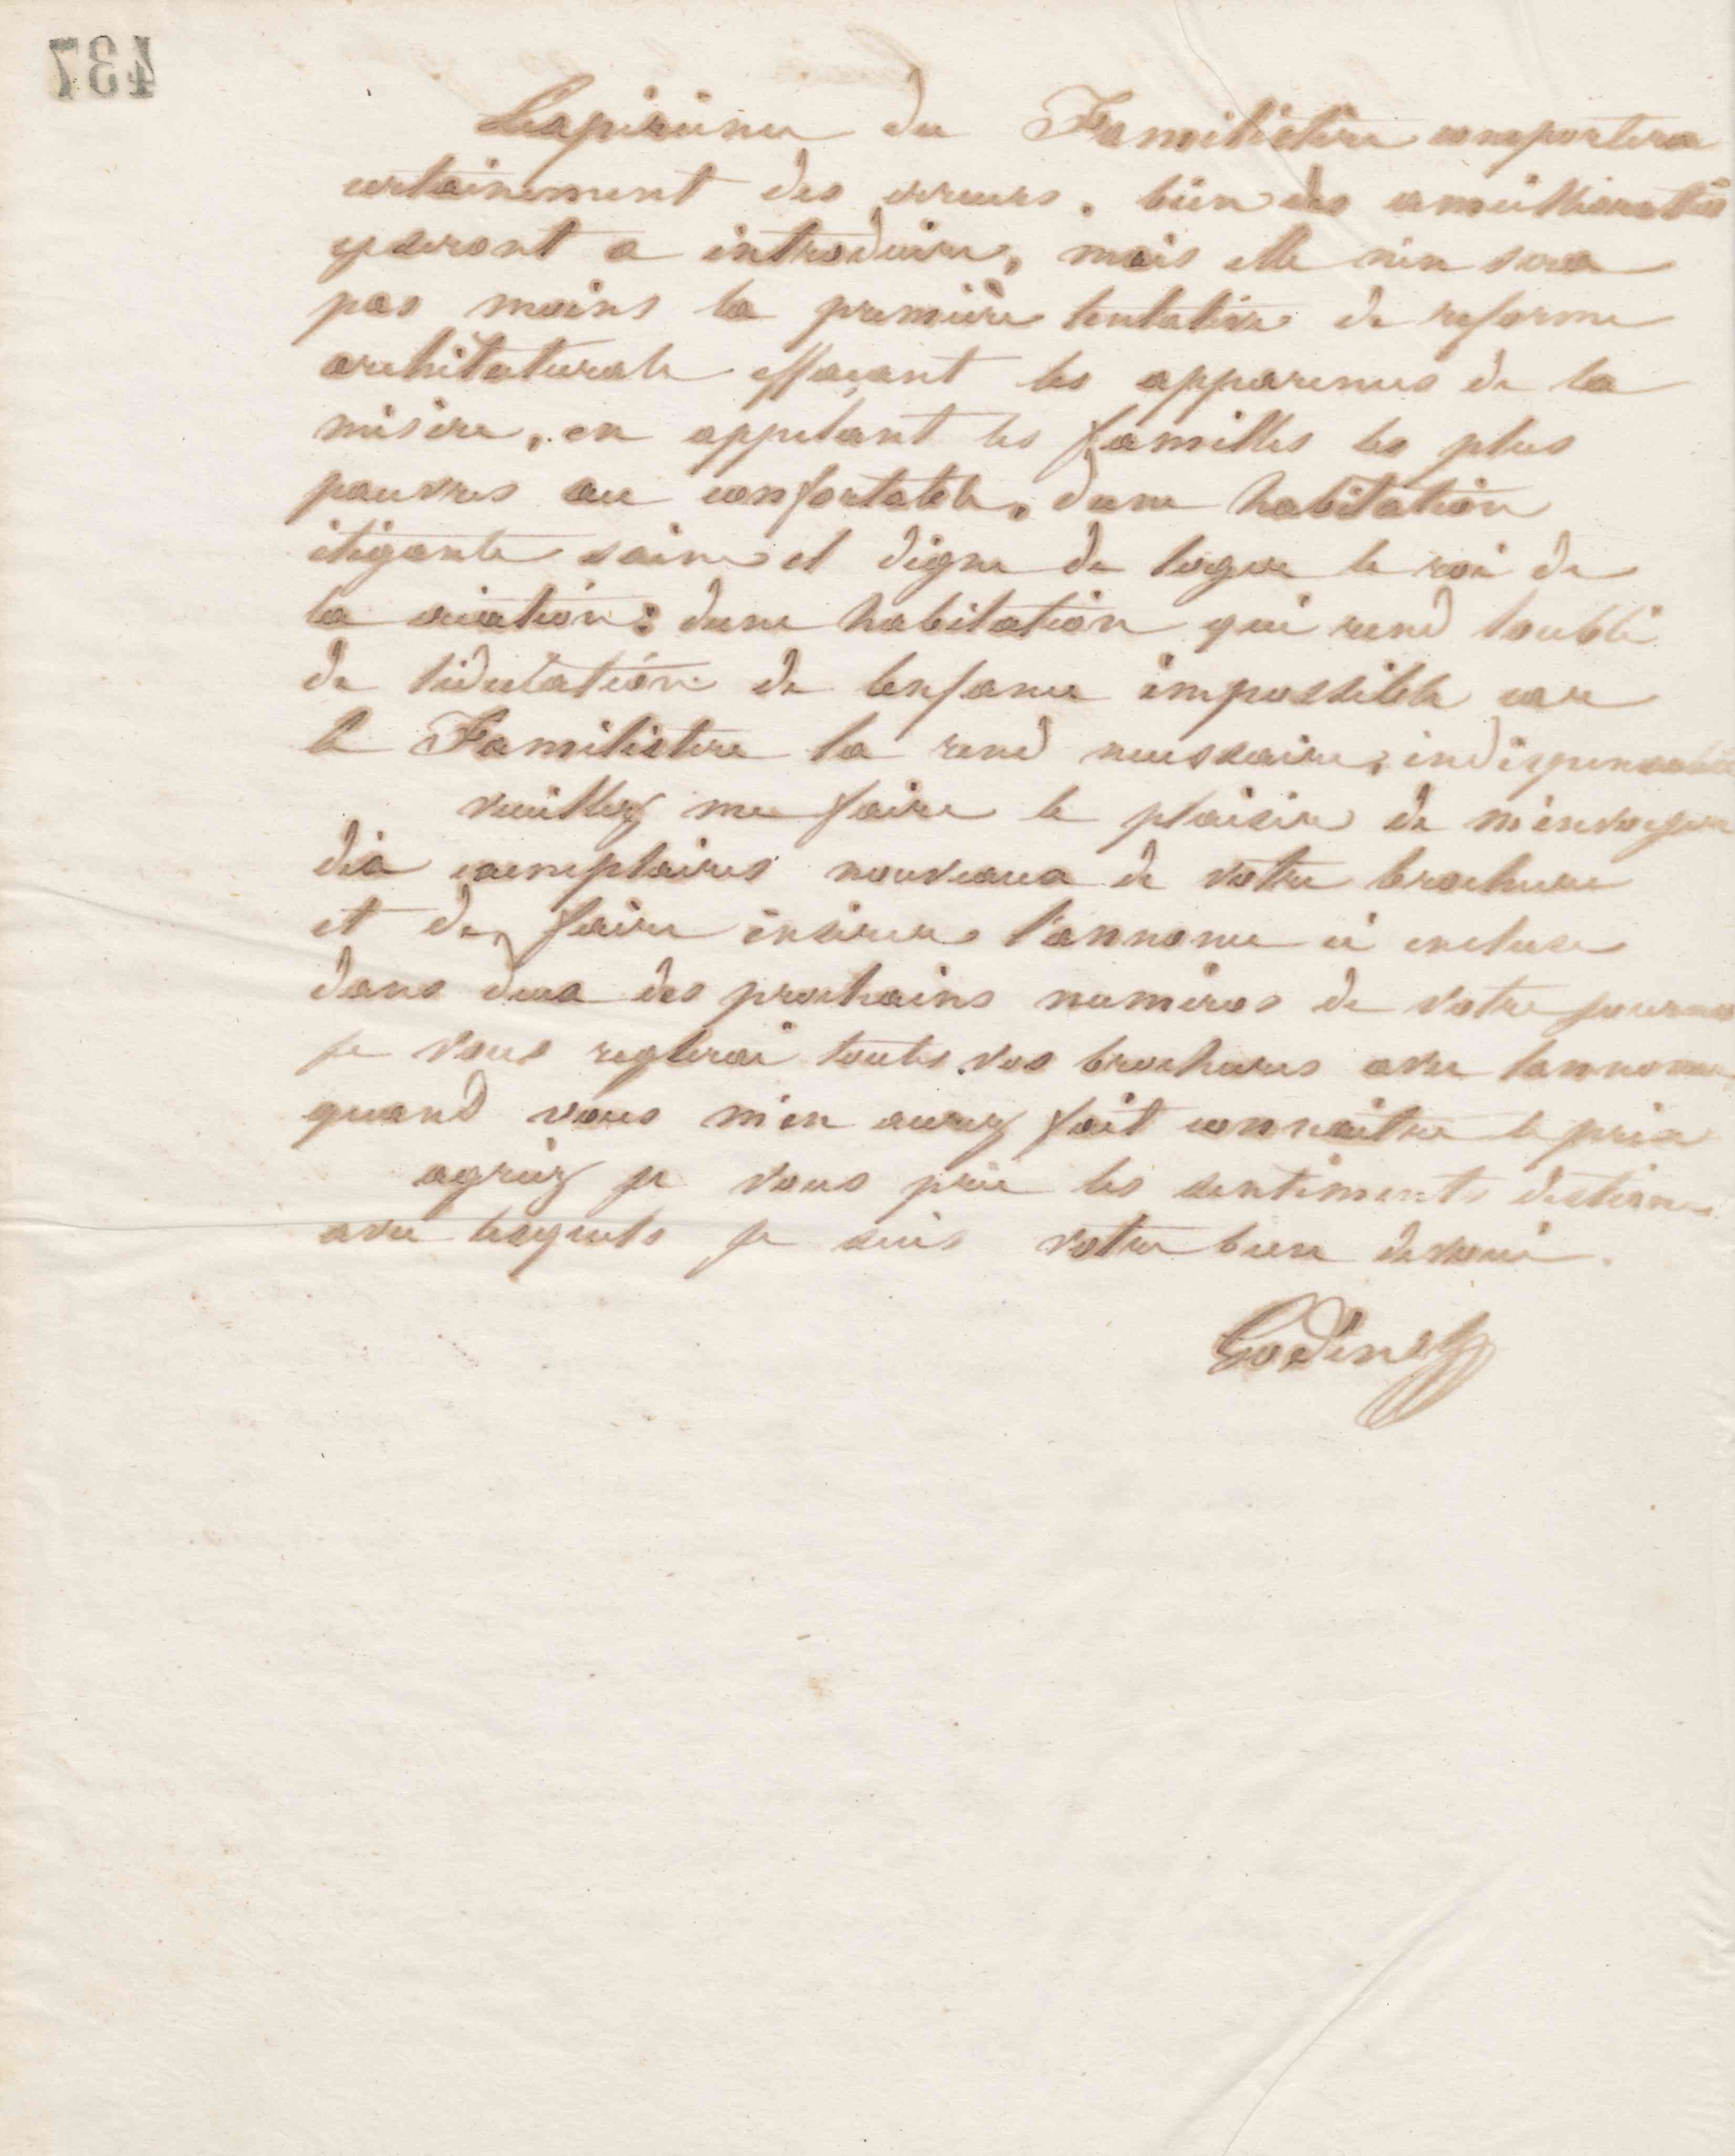 437
Lexpérience du Familistère comportera
certainement des erreurs, bien des améliorations
y seront a introduire, mais elle n'en sera
pas moins la première tentative de reforme
architecturale effaçant les apparences de la
misère, en appelant les familles les plus
pauvres au confortable, dune habitation
élégante saine et digne de loger le roi de
la création: dune habitation qui rend loubli
de léducation de lenfance impossible car
le Familistere la rend necessaire, indispensable
veuillez me faire le plaisir de m'envoyer
dix exemplaires nouveaux de votre brochure
et de faire insérer l'annonce ci incluse
dans deux des prochains numéros de votre journal
je vous reglerai toutes vos brochures avec lannonce
quand vous m'en aurez fait connaitre le prix
agréez je vous prie les sentiments distingués
avec lesquels je suis votre bien devoué
Godin